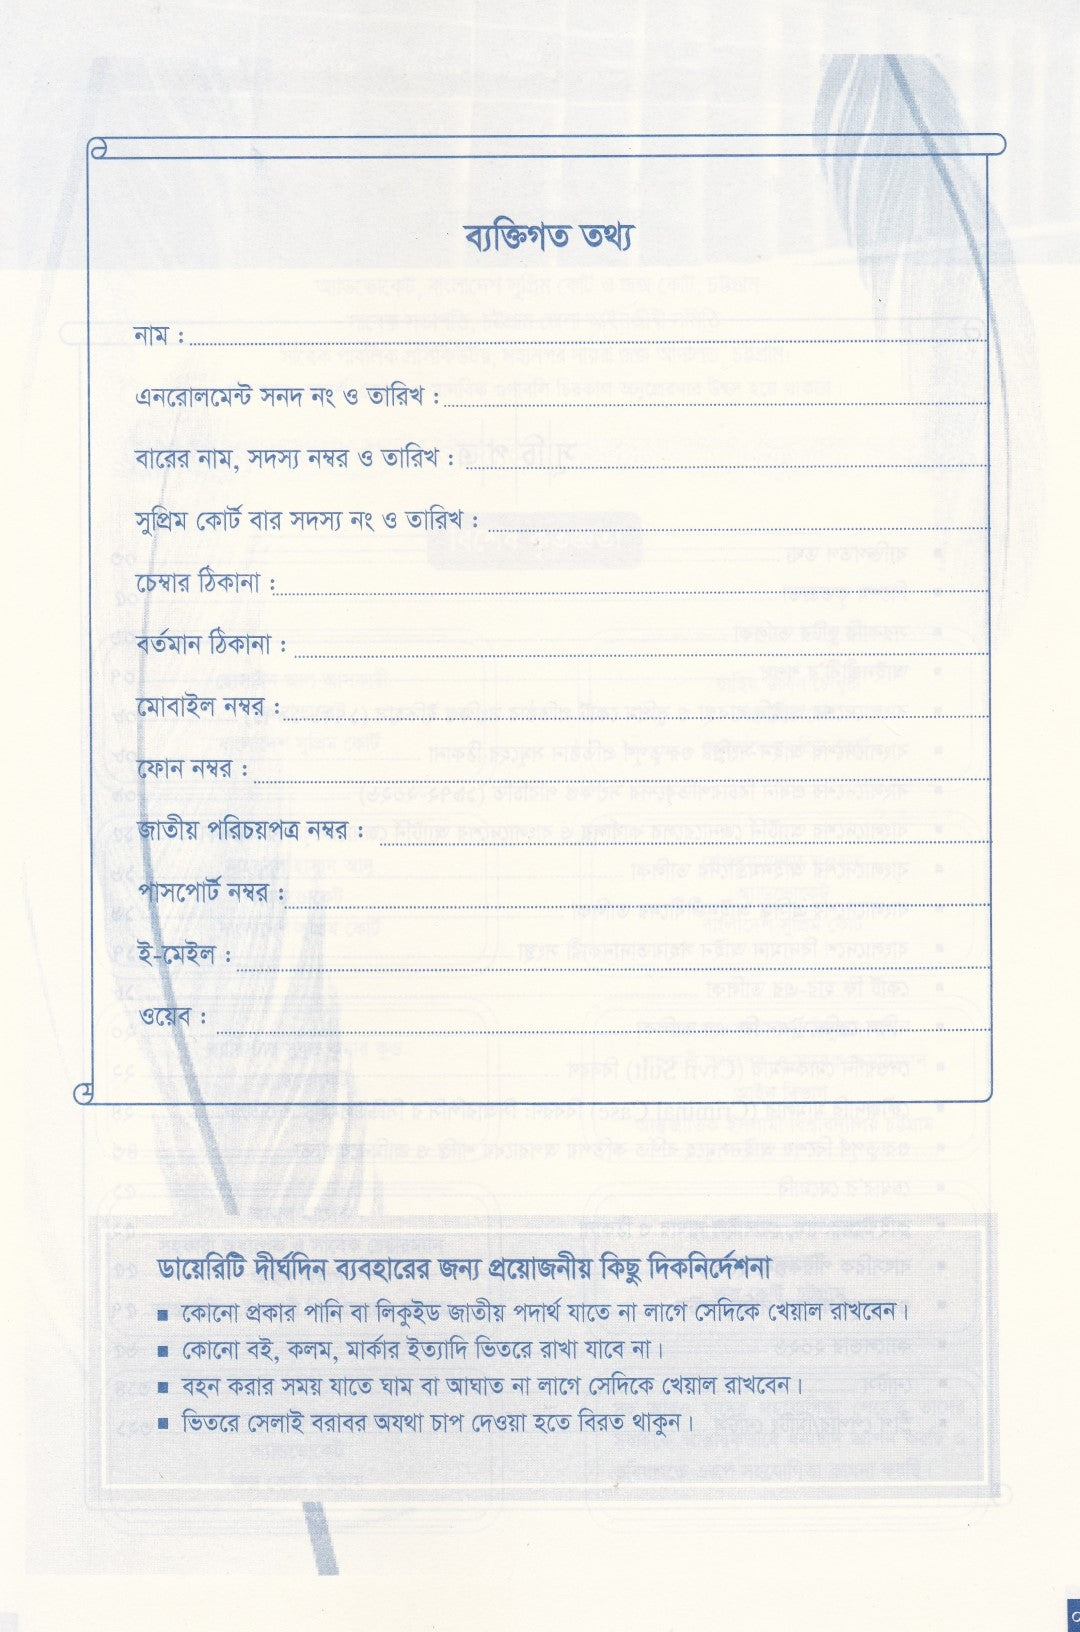 ব্যক্তিগত তথ্য
নাম :
এনরোলমেন্ট সনদ নং ও তারিখ :
বারের নাম, সদস্য নম্বর ও তারিখ :
সুপ্রিম কোর্ট বার সদস্য নং ও তারিখ :
চেম্বার ঠিকানা :
বর্তমান ঠিকানা :
মোবাইল নম্বর :
ফোন নম্বর :
জাতীয় পরিচয়পত্র নম্বর :
পাসপোর্ট নম্বর :
ই-মেইল :
ওয়েব :
ডায়েরিটি দীর্ঘদিন ব্যবহারের জন্য প্রয়োজনীয় কিছু দিকনির্দেশনা
▪ কোনো প্রকার পানি বা লিকুইড জাতীয় পদার্থ যাতে না লাগে সেদিকে খেয়াল রাখবেন।
▪ কোনো বই, কলম, মার্কার ইত্যাদি ভিতরে রাখা যাবে না।
▪ বহন করার সময় যাতে ঘাম বা আঘাত না লাগে সেদিকে খেয়াল রাখবেন।
▪ ভিতরে সেলাই বরাবর অযথা চাপ দেওয়া হতে বিরত থাকুন।